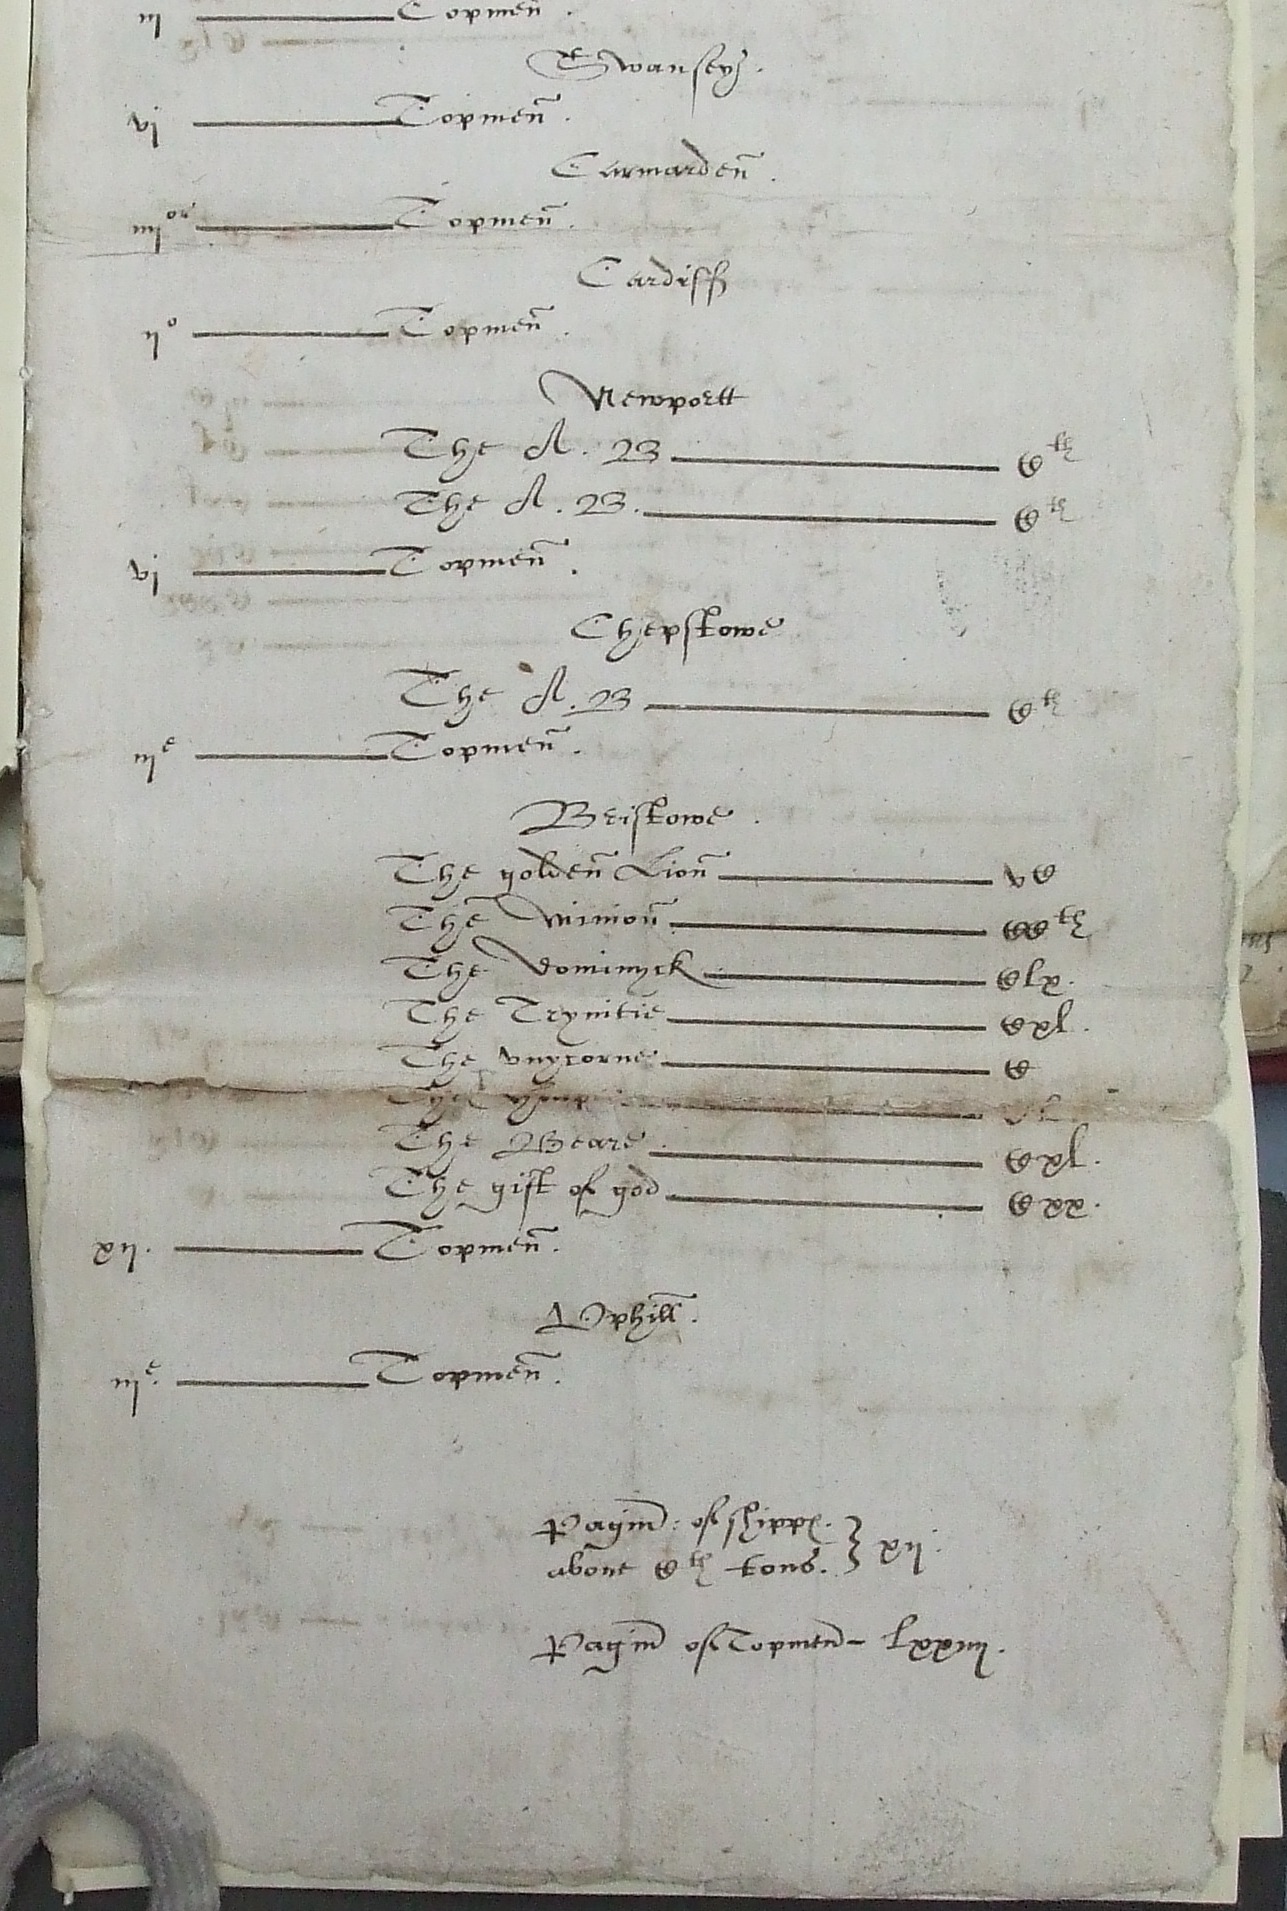 iij Topmen̄.
Swansey.
vj Topmen̄.
Carmarden̄.
iiijor Topmen̄.
Cardiff
ijo Topmen̄.
Newportt
The A. B Cth
The A. B. Cth
vj Topmen̄.
Chepstowe
The A. B Cth
iije Topmen̄.
Bristowe.
The golden̄ Lion̄ vC
The Minion̄ CCth
The Dominyck Clx.
The Trynitie Cxl.
The vnycorne C
The
The Beare Cxl.
The gift of god Cxx.
xij. Topmen̄.
Vphill.
iije. Topmen̄.
Pagin̄: of shipp
aboue Cth tons. } xij.
Pagin̄ of Topmen̄ – lxxiiij.